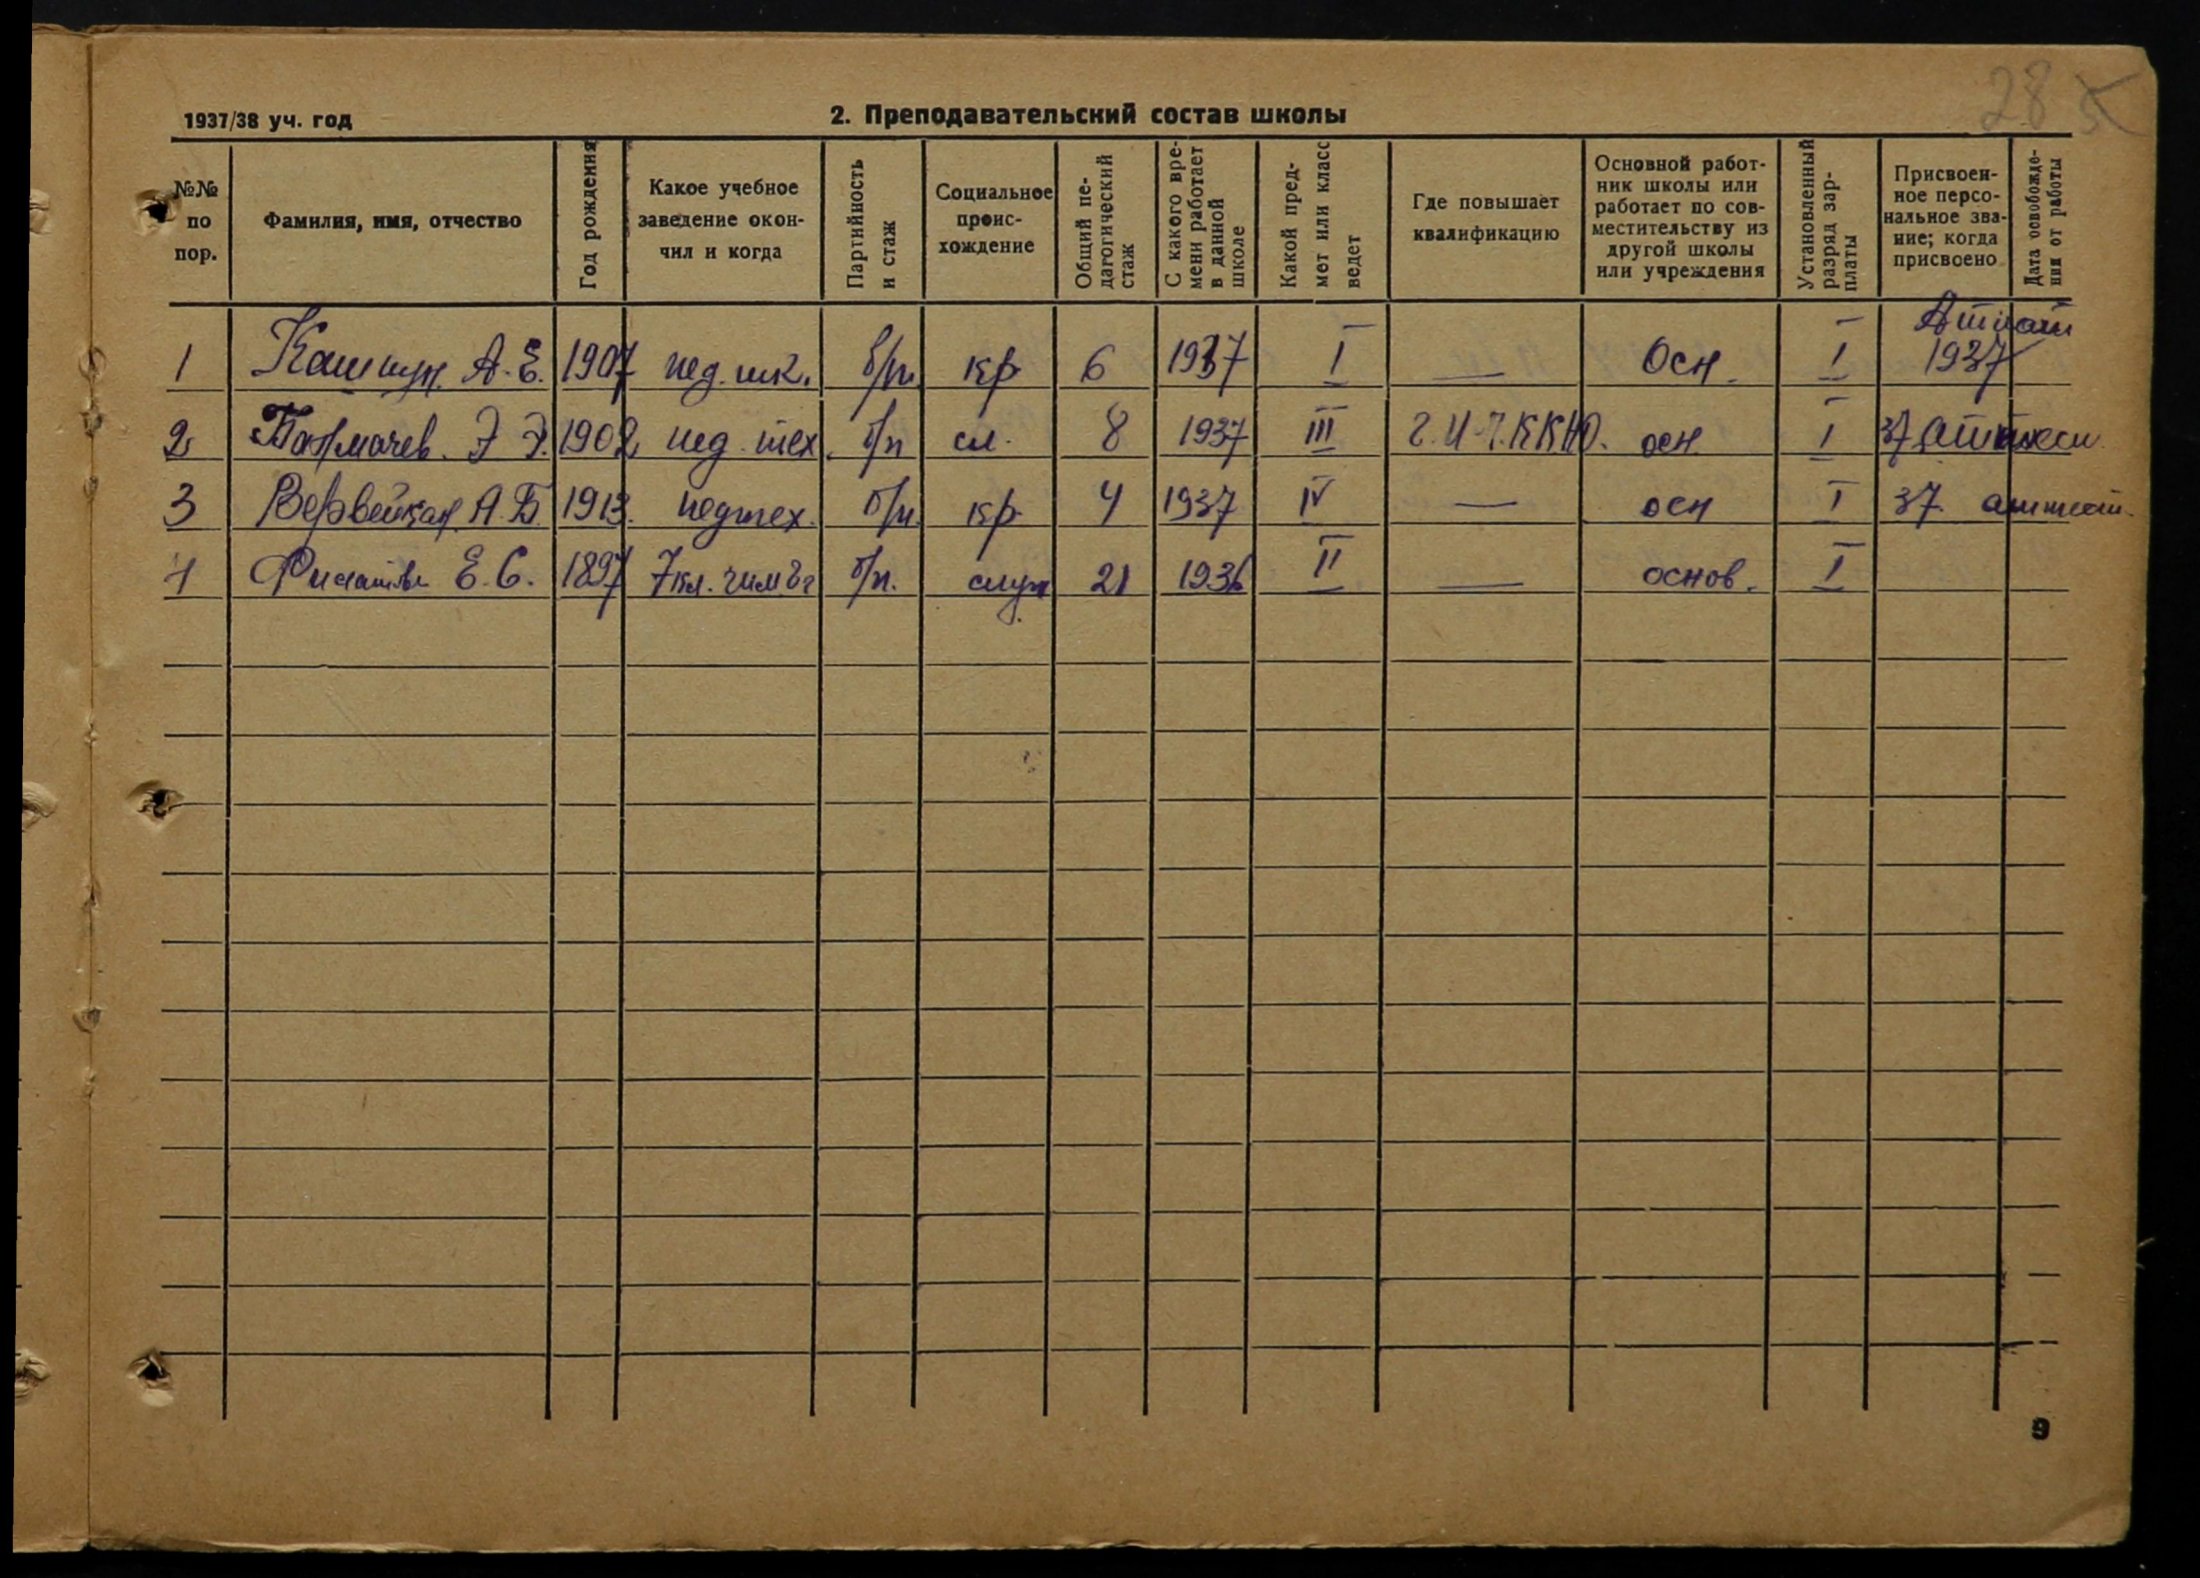 28
1937/38 уч. год
2. Преподавательский состав школы
№№ по пор.
Фамилия, имя, отчество
Год рождения
Какое учебное заведение окончил и когда
Партийность и стаж
Социальное происхождение
Общий педагогический стаж
С какого времени работает в данной школе
Какой предмет или класс ведет
Где повышает квалификацию
Основной работник школы или работает по совместительству из другой школы или учреждения
Установленный разряд зарплаты
Присвоенное персональное звание; когда присвоено
Дата освобождения от работы
1 А. Е. 1907 пед. шк. б/п. кр 6 1937 I — Осн. I Аттест 1937
2 Э. Э. 1902 пед. тех. б/п сл. 8 1937 III осн. I 37 аттест.
3 А. Б. 1913. педтех. б/п. кр 4 1937 IV — осн I 37. аттест.
4 Е. С. 1897 7 кл. гим б/п. служ. 21 1936 II — основ. I
9